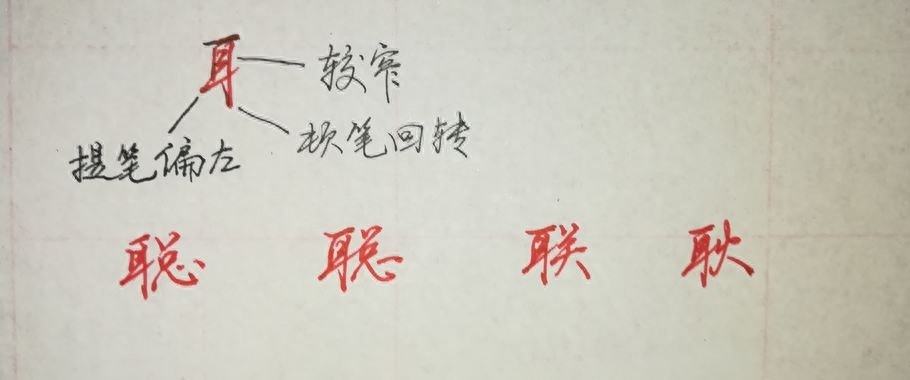 耳
较窄
顿笔回转
提笔偏左
聪 聪 联 耿